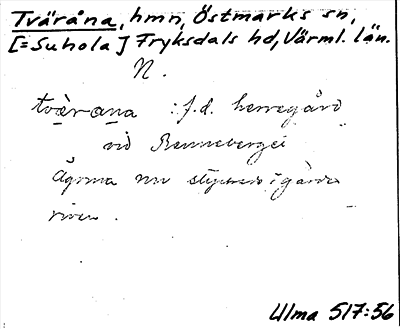 Tväråna, hmn, Östmarks sn,
[=Suhola] Fryksdals hd, Värml. län.
N.
tværana : f.d. herregård
vid
Ägorna nu
riven.
Ulma 517:56